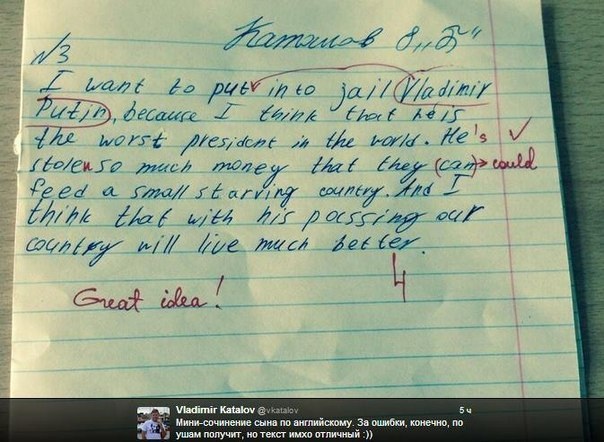 Каталов 8 „Б"
№3
I want to put in to jail Vladimir
Putin, because I think that he is
the worst president in the world. He's ✓
stolen so much money that they (can)→ could
feed a small starving country. And I
think that with his passing our
country will live much better.
Great idea! 4
Vladimir Katalov @vkatalov 5 ч
Мини-сочинение сына по английскому. За ошибки, конечно, по
ушам получит, но текст имхо отличный :))